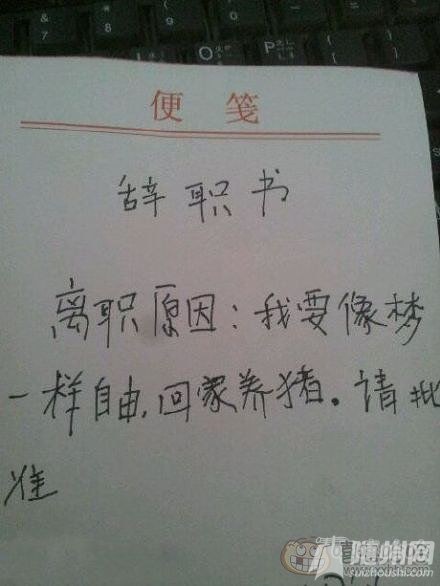 便笺
辞职书
离职原因：我要像梦
一样自由，回家养猪。请批
准
随蝴网